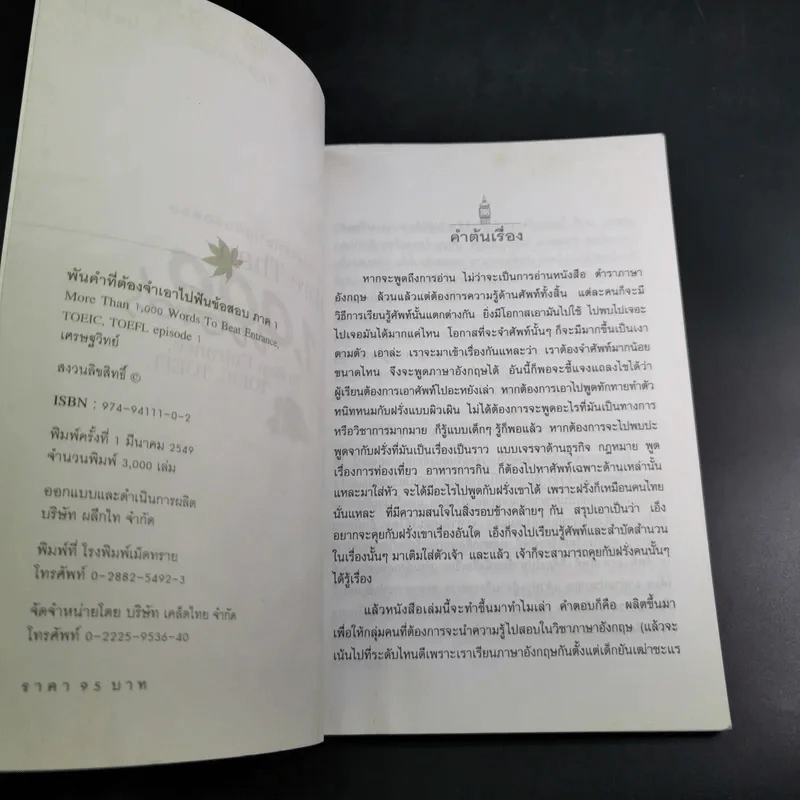 พันคำที่ต้องจำเอาไปฟันข้อสอบ ภาค 1
More Than 1,000 Words To Beat Entrance,
TOEIC, TOEFL episode 1
เศรษฐวิทย์
สงวนลิขสิทธิ์ ©
ISBN : 974-94111-0-2
พิมพ์ครั้งที่ 1 มีนาคม 2549
จำนวนพิมพ์ 3,000 เล่ม
ออกแบบและดำเนินการผลิต
บริษัท ผลึกไท จำกัด
พิมพ์ที่ โรงพิมพ์เม็ดทราย
โทรศัพท์ 0-2882-5492-3
จัดจำหน่ายโดย บริษัท เคล็ดไทย จำกัด
โทรศัพท์ 0-2225-9536-40
ราคา 95 บาท
คำต้นเรื่อง
หากจะพูดถึงการอ่าน ไม่ว่าจะเป็นการอ่านหนังสือ ตำราภาษา
อังกฤษ ล้วนแล้วแต่ต้องการความรู้ด้านศัพท์ทั้งสิ้น แต่ละคนก็จะมี
วิธีการเรียนรู้ศัพท์นั้นแตกต่างกัน ยิ่งมีโอกาสเอามันไปใช้ ไปพบไปเจอะ
ไปเจอมันได้มากแค่ไหน โอกาสที่จะจำศัพท์นั้นๆ ก็จะมีมากขึ้นเป็นเงา
ตามตัว เอาล่ะ เราจะมาเข้าเรื่องกันแหละว่า เราต้องจำศัพท์มากน้อย
ขนาดไหน จึงจะพูดภาษาอังกฤษได้ อันนี้ก็พอจะชี้แจงแถลงไขได้ว่า
ผู้เรียนต้องการเอาศัพท์ไปอะหยังเล่า หากต้องการเอาไปพูดทักทายทำตัว
หนิทหนมกับฝรั่งแบบผิวเผิน ไม่ได้ต้องการจะพูดอะไรที่มันเป็นทางการ
หรือวิชาการมากมาย ก็รู้แบบเด็กๆ รู้ก็พอแล้ว หากต้องการจะไปพบปะ
พูดจากับฝรั่งที่มันเป็นเรื่องเป็นราว แบบเจรจาด้านธุรกิจ กฎหมาย พูด
เรื่องการท่องเที่ยว อาหารการกิน ก็ต้องไปหาศัพท์เฉพาะด้านเหล่านั้น
แหละมาใส่หัว จะได้มีอะไรไปพูดกับฝรั่งเขาได้ เพราะฝรั่งก็เหมือนคนไทย
นั่นแหละ ที่มีความสนใจในสิ่งรอบข้างคล้ายๆ กัน สรุปเอาเป็นว่า เอ็ง
อยากจะคุยกับฝรั่งเขาเรื่องอันใด เอ็งก็จงไปเรียนรู้ศัพท์และสำบัดสำนวน
ในเรื่องนั้นๆ มาเติมใส่ตัวเจ้า และแล้ว เจ้าก็จะสามารถคุยกับฝรั่งคนนั้นๆ
ได้รู้เรื่อง
แล้วหนังสือเล่มนี้จะทำขึ้นมาทำไมเล่า คำตอบก็คือ ผลิตขึ้นมา
เพื่อให้กลุ่มคนที่ต้องการจะนำความรู้ไปสอบในวิชาภาษาอังกฤษ (แล้วจะ
เน้นไปที่ระดับไหนดีเพราะเราเรียนภาษาอังกฤษกันตั้งแต่เด็กยันเฒ่าชะแร